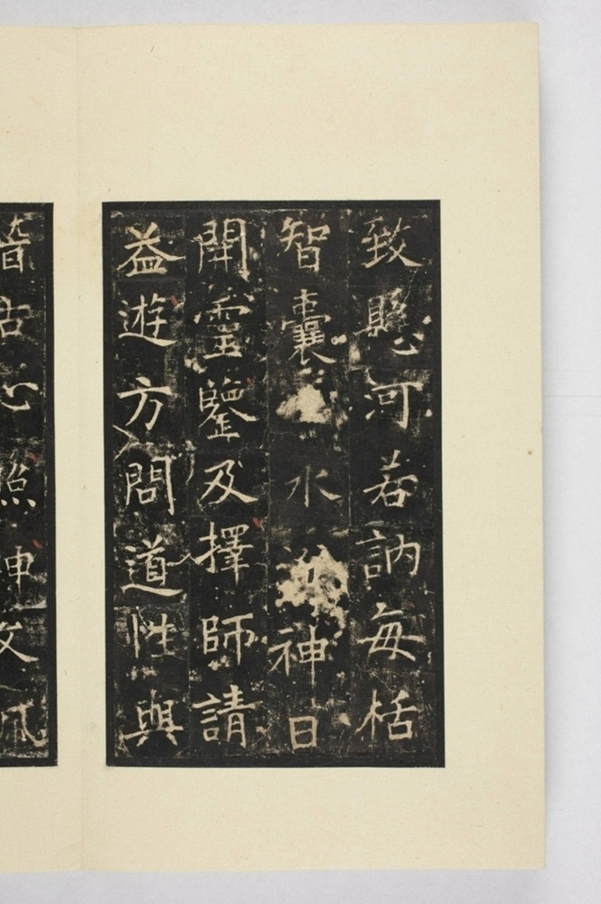 致懸河若訥每栝
智囊水神日
開靈鑒及擇師請
益遊方問道性與
心照神